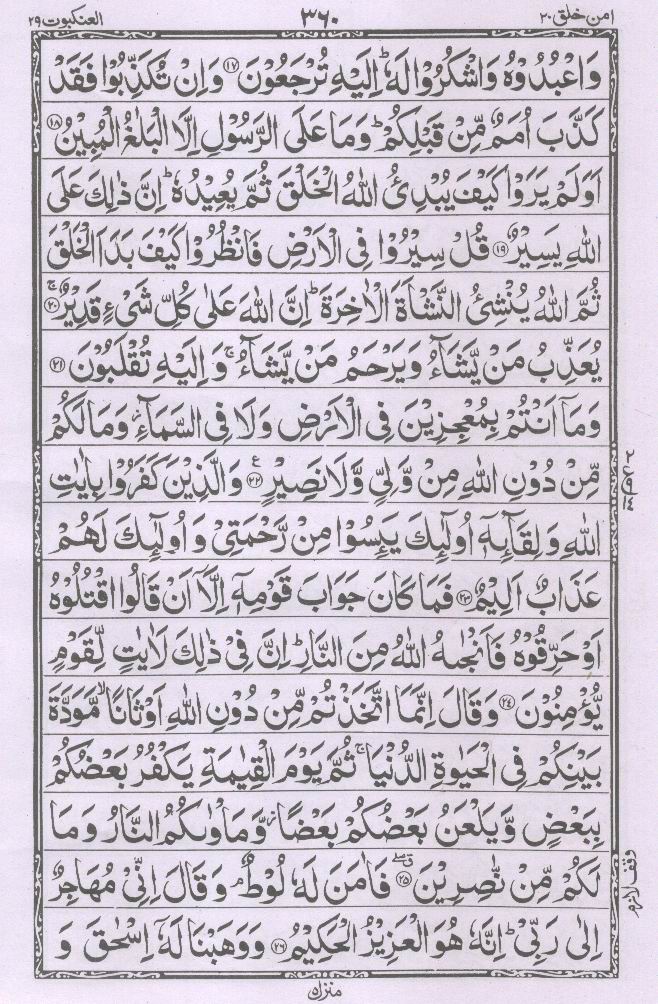 امن خلق ٢٠ ٣٦٠ العنكبوت ٢٩
وَاعْبُدُوْهُ وَاشْكُرُوْا لَهٗ ؕ اِلَيْهِ تُرْجَعُوْنَ ۝۱۷ وَاِنْ تُكَذِّبُوْا فَقَدْ
كَذَّبَ اُمَمٌ مِّنْ قَبْلِكُمْ ؕ وَمَا عَلَى الرَّسُوْلِ اِلَّا الْبَلٰغُ الْمُبِيْنُ ۝۱۸
اَوَلَمْ يَرَوْا كَيْفَ يُبْدِئُ اللّٰهُ الْخَلْقَ ثُمَّ يُعِيْدُهٗ ؕ اِنَّ ذٰلِكَ عَلَى
اللّٰهِ يَسِيْرٌ ۝۱۹ قُلْ سِيْرُوْا فِى الْاَرْضِ فَانْظُرُوْا كَيْفَ بَدَاَ الْخَلْقَ
ثُمَّ اللّٰهُ يُنْشِئُ النَّشْاَةَ الْاٰخِرَةَ ؕ اِنَّ اللّٰهَ عَلٰى كُلِّ شَىْءٍ قَدِيْرٌ ۚ ۝۲۰
يُعَذِّبُ مَنْ يَّشَآءُ وَيَرْحَمُ مَنْ يَّشَآءُ ۚ وَاِلَيْهِ تُقْلَبُوْنَ ۝۲۱
وَمَاۤ اَنْتُمْ بِمُعْجِزِيْنَ فِى الْاَرْضِ وَلَا فِى السَّمَآءِ ؗ وَمَا لَكُمْ
مِّنْ دُوْنِ اللّٰهِ مِنْ وَّلِىٍّ وَّلَا نَصِيْرٍ ۝۲۲ ع وَالَّذِيْنَ كَفَرُوْا بِاٰيٰتِ
اللّٰهِ وَلِقَآئِهٖۤ اُولٰٓئِكَ يَئِسُوْا مِنْ رَّحْمَتِىْ وَاُولٰٓئِكَ لَهُمْ
عَذَابٌ اَلِيْمٌ ۝۲۳ فَمَا كَانَ جَوَابَ قَوْمِهٖۤ اِلَّاۤ اَنْ قَالُوا اقْتُلُوْهُ
اَوْ حَرِّقُوْهُ فَاَنْجٰىهُ اللّٰهُ مِنَ النَّارِ ؕ اِنَّ فِىْ ذٰلِكَ لَاٰيٰتٍ لِّقَوْمٍ
يُّؤْمِنُوْنَ ۝۲٤ وَقَالَ اِنَّمَا اتَّخَذْتُمْ مِّنْ دُوْنِ اللّٰهِ اَوْثَانًا ۙ مَّوَدَّةَ
بَيْنِكُمْ فِى الْحَيٰوةِ الدُّنْيَا ۚ ثُمَّ يَوْمَ الْقِيٰمَةِ يَكْفُرُ بَعْضُكُمْ
بِبَعْضٍ وَّيَلْعَنُ بَعْضُكُمْ بَعْضًا ؗ وَّمَاْوٰىكُمُ النَّارُ وَمَا
لَكُمْ مِّنْ نّٰصِرِيْنَ ۝۲۵ فَاٰمَنَ لَهٗ لُوْطٌ ۘ وَقَالَ اِنِّىْ مُهَاجِرٌ
اِلٰى رَبِّىْ ؕ اِنَّهٗ هُوَ الْعَزِيْزُ الْحَكِيْمُ ۝۲۶ وَوَهَبْنَا لَهٗۤ اِسْحٰقَ وَ
وقف لازم
منزل ٥